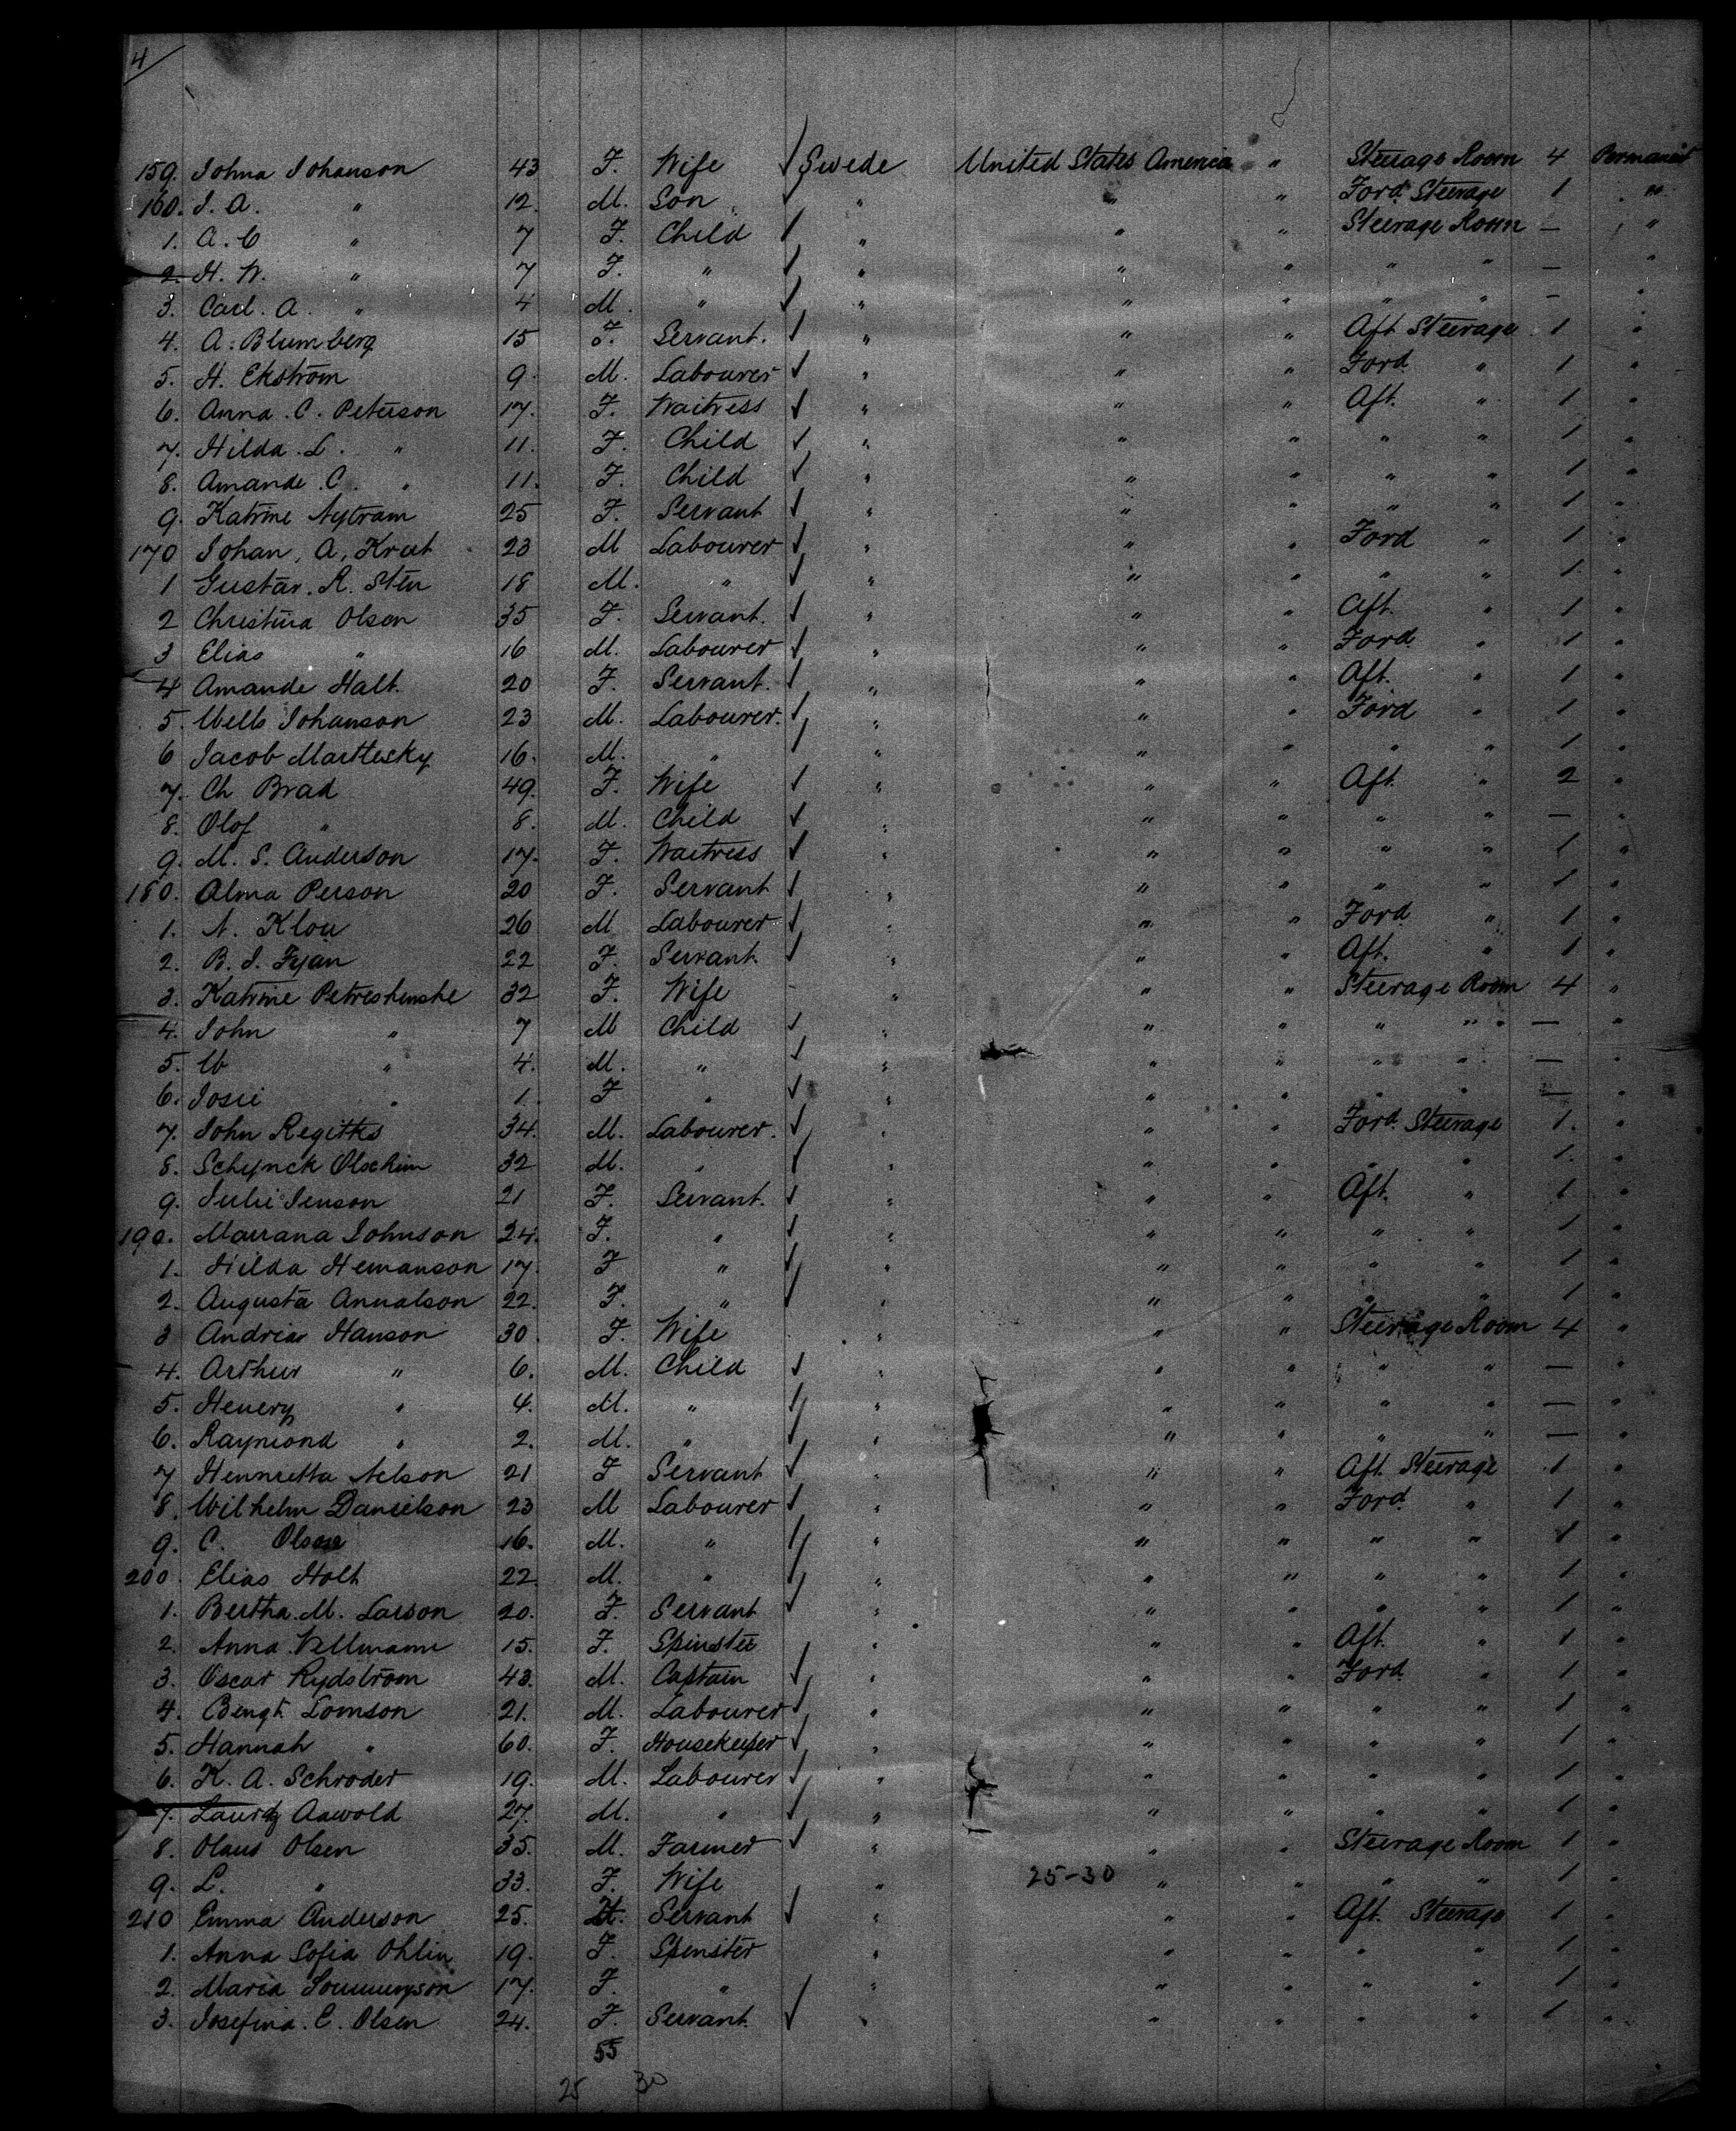 4
159. Johna Johanson 43 F. Wife ✓ Swede United States America " Steerage Room 4 Permanent
160. J. A. " 12. M. Son ✓ " " " Ford. Steerage 1 "
1. A. C " 7 F. Child ✓ " " " Steerage Room — "
2. H. W. " 7 F. " ✓ " " " " " — "
3. Carl. A. " 4 M " ✓ " " " " " — "
4. A. Blumberg 15 F. Servant. ✓ " " " Aft Steerage 1 "
5. H. Ekström 9. M. Labourer ✓ " " " Ford " 1 "
6. Anna. C. Peterson 17. F. Waitress ✓ " " " Aft. " 1 "
7. Hilda. L. " 11. F. Child ✓ " " " " " 1 "
8. Amande. C. " 11. F. Child ✓ " " " " " 1 "
9. Katrine Nytram 25 F. Servant ✓ " " " " " 1 "
170 Johan. A. Krut 23 M Labourer ✓ " " " Ford " 1 "
1 Gustav. R. Sten 18 M. " ✓ " " " " " 1 "
2 Christina Olsen 35 F. Servant. ✓ " " " Aft. " 1 "
3 Elias " 16 M. Labourer ✓ " " " Ford. " 1 "
4 Amande Halt. 20 F. Servant. ✓ " " " Aft. " 1 "
5. Johanson 23 M. Labourer. ✓ " " " Ford " 1 "
6 Jacob Marttesky 16. M. " ✓ " " " " " 1 "
7. Ch Brad 49. F. Wife ✓ " " " Aft. " 2 "
8. Olof " 8. M. Child ✓ " " " " " — "
9. M. S. Anderson 17. F. Waitress ✓ " " " " " 1 "
180. Alma Person 20 F. Servant ✓ " " " " " 1 "
1. N. Klou 26 M Labourer ✓ " " " Ford " 1 "
2. B. J. Fyan 22 F. Servant. ✓ " " " Aft. " 1 "
3. Katrine Petreshenske 32 F. Wife " " " Steerage Room 4 "
4. John " 7 M Child ✓ " " " " " — "
5. W " 4. M. " ✓ " " " " " — "
6. Josie " 1. F " ✓ " " " " " — "
7. John Regitks 34. M. Labourer. ✓ " " " Ford. Steerage 1. "
8. Schynck Olschim 32 M. " ✓ " " " " " 1. "
9. Julie Jenson 21 F. Servant. ✓ " " " Aft. " 1 "
190. Marrana Johnson 24. F. " ✓ " " " " " 1 "
1. Hilda Hemanson 17. F " ✓ " " " " " 1 "
2. Augusta Annalson 22. F. " ✓ " " " " " 1 "
3 Andrias Hanson 30. F. Wife " " " Steerage Room 4 "
4. Arthur " 6. M. Child ✓ " " " " " — "
5. Henery " 4. M. " ✓ " " " " " — "
6. Raymond " 2. M. " ✓ " " " " " — "
7 Hennretta Nelson 21 F Servant ✓ " " " Aft. Steerage 1 "
8. Wilhelm Danielson 23 M Labourer ✓ " " " Ford. " 1 "
9. C. Olson 16. M. " ✓ " " " " " 1 "
200. Elias Holt 22 M. " ✓ " " " " " 1 "
1. Bertha. M. Larson 20. F. Servant ✓ " " " " " 1 "
2. Anna Vellmann 15. F. Spinster " " " Aft. " 1 "
3. Oscar Rydström 43. M. Captain ✓ " " " Ford. " 1 "
4. Bengt Lomson 21. M. Labourer ✓ " " " " " 1 "
5. Hannah " 60. F. Housekeeper ✓ " " " " " 1 "
6. K. A. Schroder 19. M. Labourer ✓ " " " " " 1 "
7. Aawold 27. M. " ✓ " " " " " 1 "
8. Olaus Olsen 35. M. Farmer ✓ " " " Steerage Room 1 "
9. L. " 33. F. Wife " 25-30 " " " " 1 "
210 Emma Anderson 25. Servant ✓ " " " Aft. Steerage 1 "
1. Anna Sofia Ohlin 19. F. Spinster " " " " " 1 "
2. Maria 17. F. " ✓ " " " " " 1 "
3. Josefina. C. Olsen 24. F. Servant. ✓ " " " " " 1 "
55
25 30